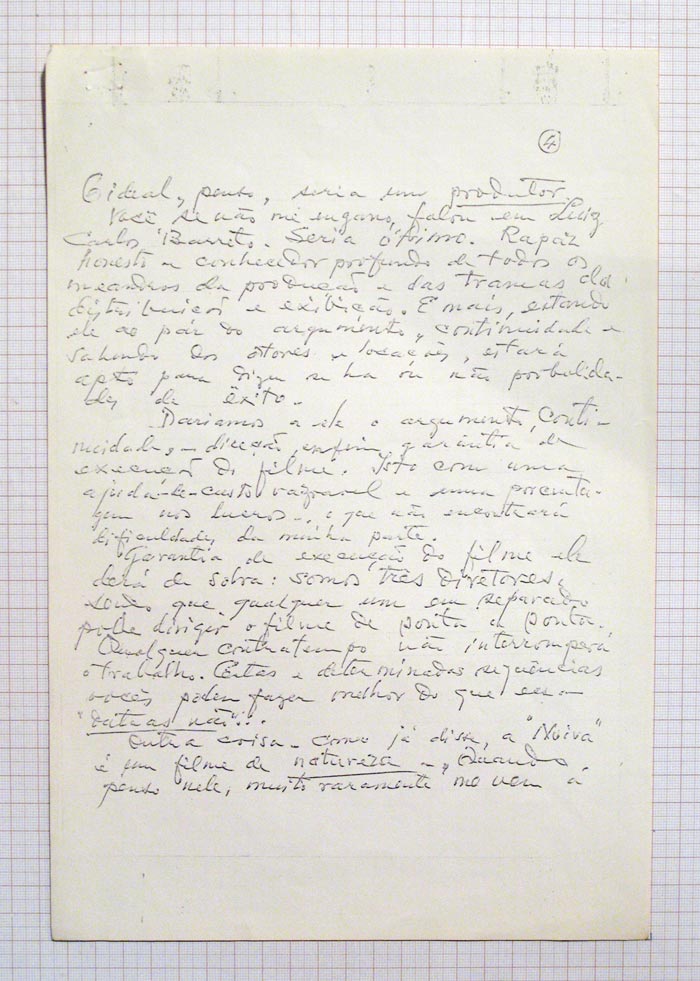 4
O ideal, penso, seria um produtor.
Você se não me engano, falou em Luiz
Carlos Barreto. Seria ótimo. Rapaz
honesto e conhecedor profundo de todos os
meandros da produção e das trancas da
distribuição e exibição. E mais, estando
ele ao pár do argumento, continuidade e
sabendo dos atores e locações, estará
apto para dizer se ha ou não possibilida-
des de êxito.
Dariamos a ele o argumento, conti-
nuidade, direção, enfim, garantia de
execução do filme. Isto com uma
ajuda-de-custo razoavel e uma porcenta-
gem nos lucros, o que não encontrará
dificuldades da minha parte.
Garantia de execução do filme ele
terá de sobra: somos três diretores,
sendo que qualquer um em separado
pode dirigir o filme de ponta a ponta.
Qualquer contratempo não interromperá
o trabalho. Certas e determinadas sequências
vocês podem fazer melhor do que eu
"outras não"!.
Outra coisa. Como já disse, a "Noiva"
é um filme de natureza. Quando
penso nele, muito raramente me vem a